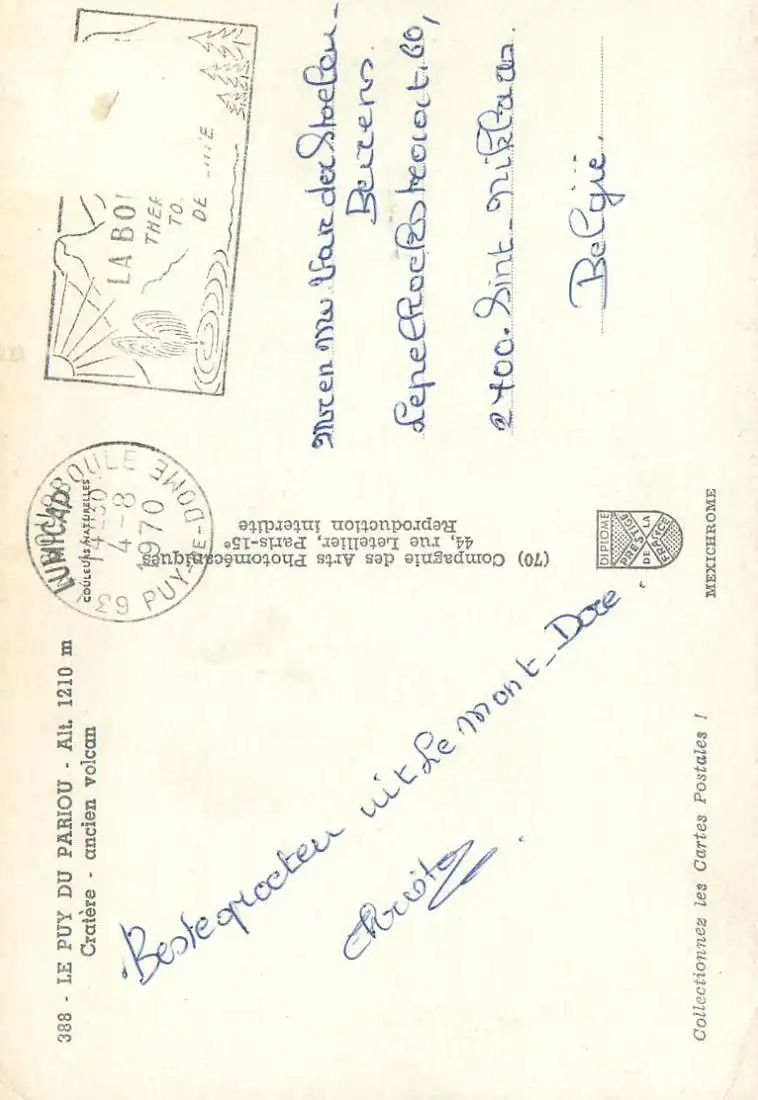 388 - LE PUY DU PARIOU - Alt. 1210 m
Cratère - ancien volcan
Beste groeten uit Le Mont-Dore.
Christa
Collectionnez les Cartes Postales !
LUMICAP
COULEURS NATURELLES
63 PUY-DE-DOME
4-8
1970
(70) Compagnie des Arts Photomécaniques
44, rue Letellier, Paris-15e
Reproduction interdite
DIPLOME
PRESTIGE
DE LA
FRANCE
MEXICHROME
LA BO
THER
TO
DE
M en Mw Van der Stoelen-
Beirens.
Lepelhoekstraat, 60,
2700. Sint-Niklaas.
België.